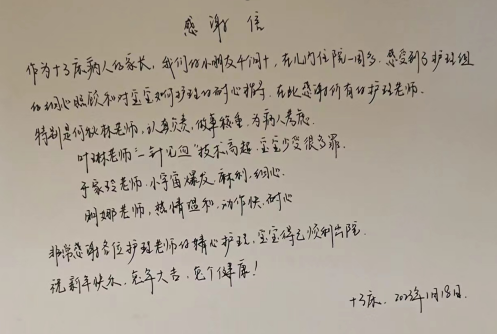 感谢信
作为十3床病人的家长，我们的小朋友4个月+，在儿内住院一周多，感受到了护理组
的细心照顾和对宝宝如何护理的耐心指导，在此感谢所有的护理老师。
特别是何林老师，认真负责，做事稳重，为病人考虑。
叶琳老师"一针见血"技术高超，宝宝少受很多罪。
于家玲老师，小宇宙爆发，麻利，细心
娜老师，热情温和，动作快，耐心
非常感谢各位护理老师的精心护理，宝宝得已顺利出院。
祝新年快乐，兔年大吉，兔个健康！
十3床，2023年1月18日.